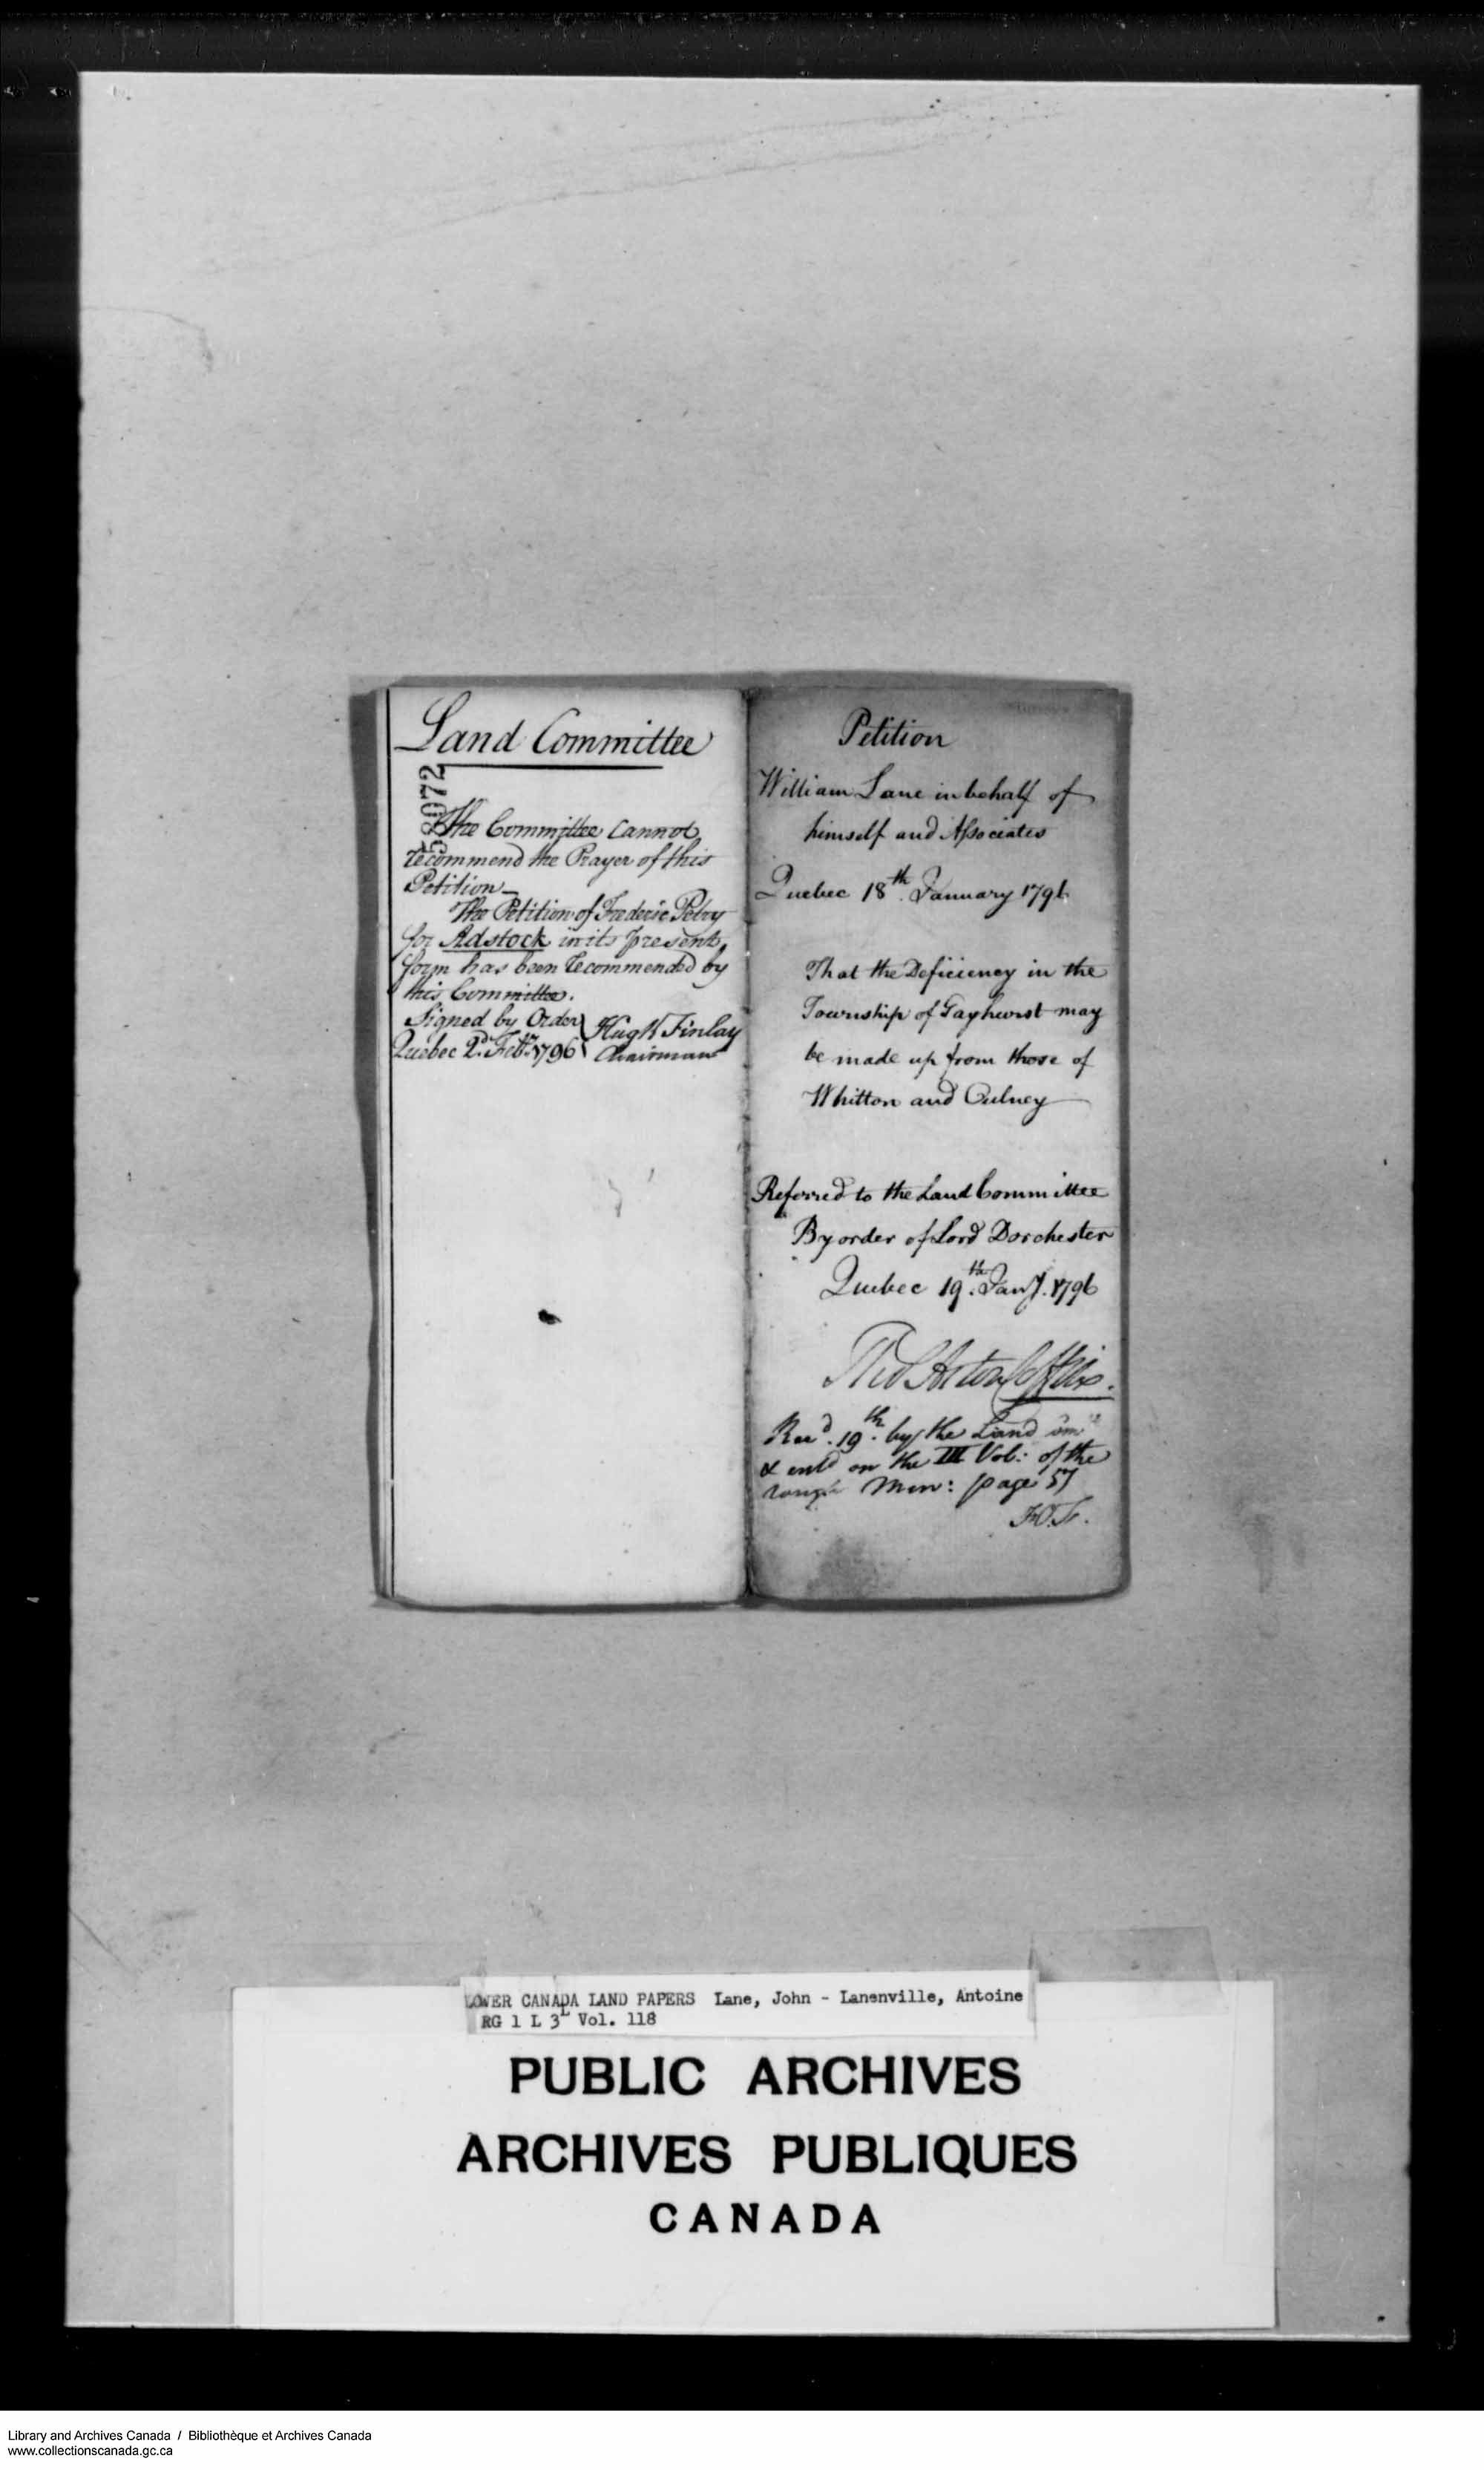 Land Committee
58072
The Committee cannot
recommend the Prayer of this
Petition
The Petition of Frederic Petry
for Adstock in its present
form has been recommended by
this Committee.
Signed by Order
Quebec 2d. Febry 1796
Hugh Finlay
Chairman
Petition
William Lane in behalf of
himself and Associates
Quebec 18th. January 1796
That the Deficiency in the
Township of Gayhurst may
be made up from those of
Whitton and Oulney
Referred to the Land Committee
By order of Lord Dorchester
Quebec 19th. Jany. 1796
Thos Aston Coffin.
Recd. 19th. by the Land
& entd on the III Vol: of the
rough Min: page 57
LOWER CANADA LAND PAPERS Lane, John - Lanenville, Antoine
RG 1 L 3L Vol. 118
PUBLIC ARCHIVES
ARCHIVES PUBLIQUES
CANADA
Library and Archives Canada / Bibliothèque et Archives Canada
www.collectionscanada.gc.ca